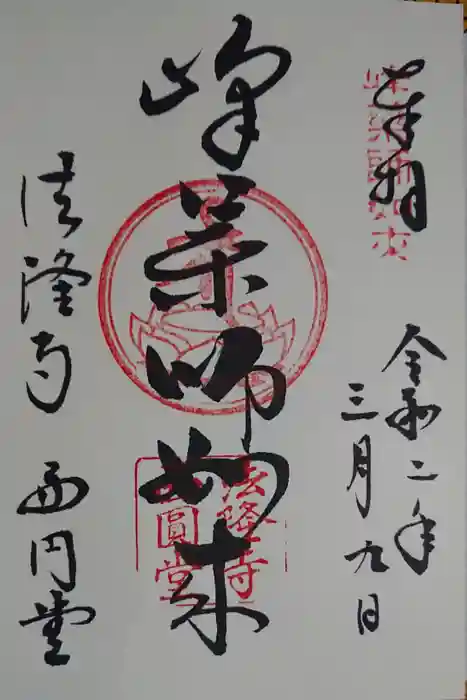 奉拝
峰薬師如来
令和二年
三月九日
峰薬師如来
法隆寺
西圓堂
法隆寺 西円堂